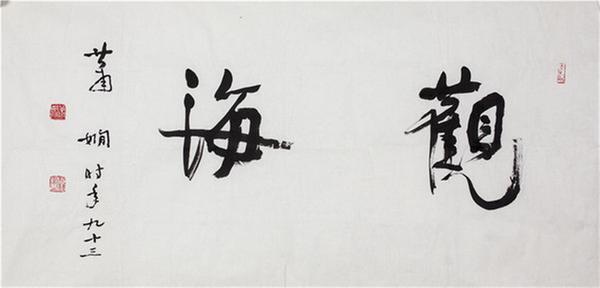 觀海
蕭嫻时年九十三